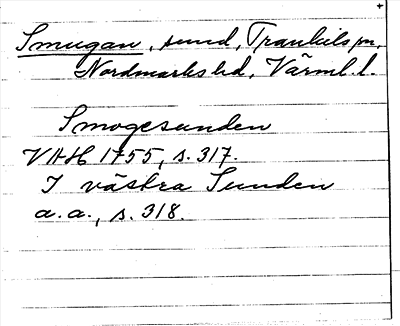 Smugan, sund, Trankils sn,
Nordmarks hd, Värml. l.
Smogesunden
VAH 1755, s. 317.
I västra Sunden
a.a., s. 318.